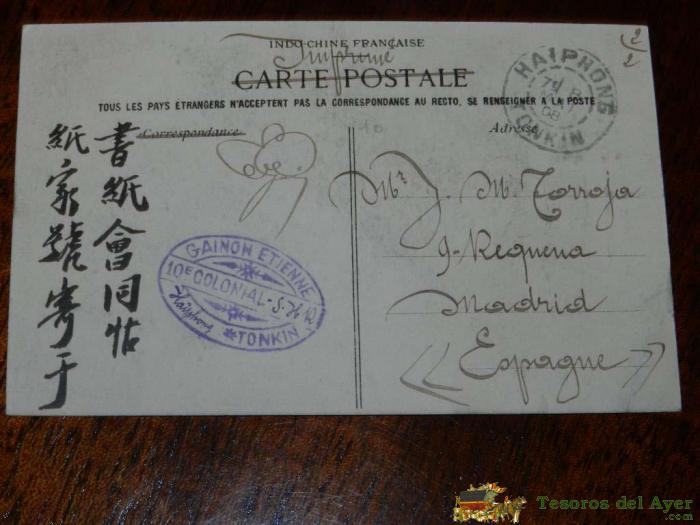 INDO-CHINE FRANÇAISE
Imprimé
CARTE POSTALE
TOUS LES PAYS ÉTRANGERS N'ACCEPTENT PAS LA CORRESPONDANCE AU RECTO, SE RENSEIGNER A LA POSTE
Correspondance
Adresse
2/2
HAIPHONG
08
TONKIN
書紙會同帖
紙家號寄于
GAINON ETIENNE
10E COLONIAL-S-H-R
Haïphong
TONKIN
Mr J. M. Torroja
9-Requena
Madrid
Espagne
Tesoros del Ayer
.com